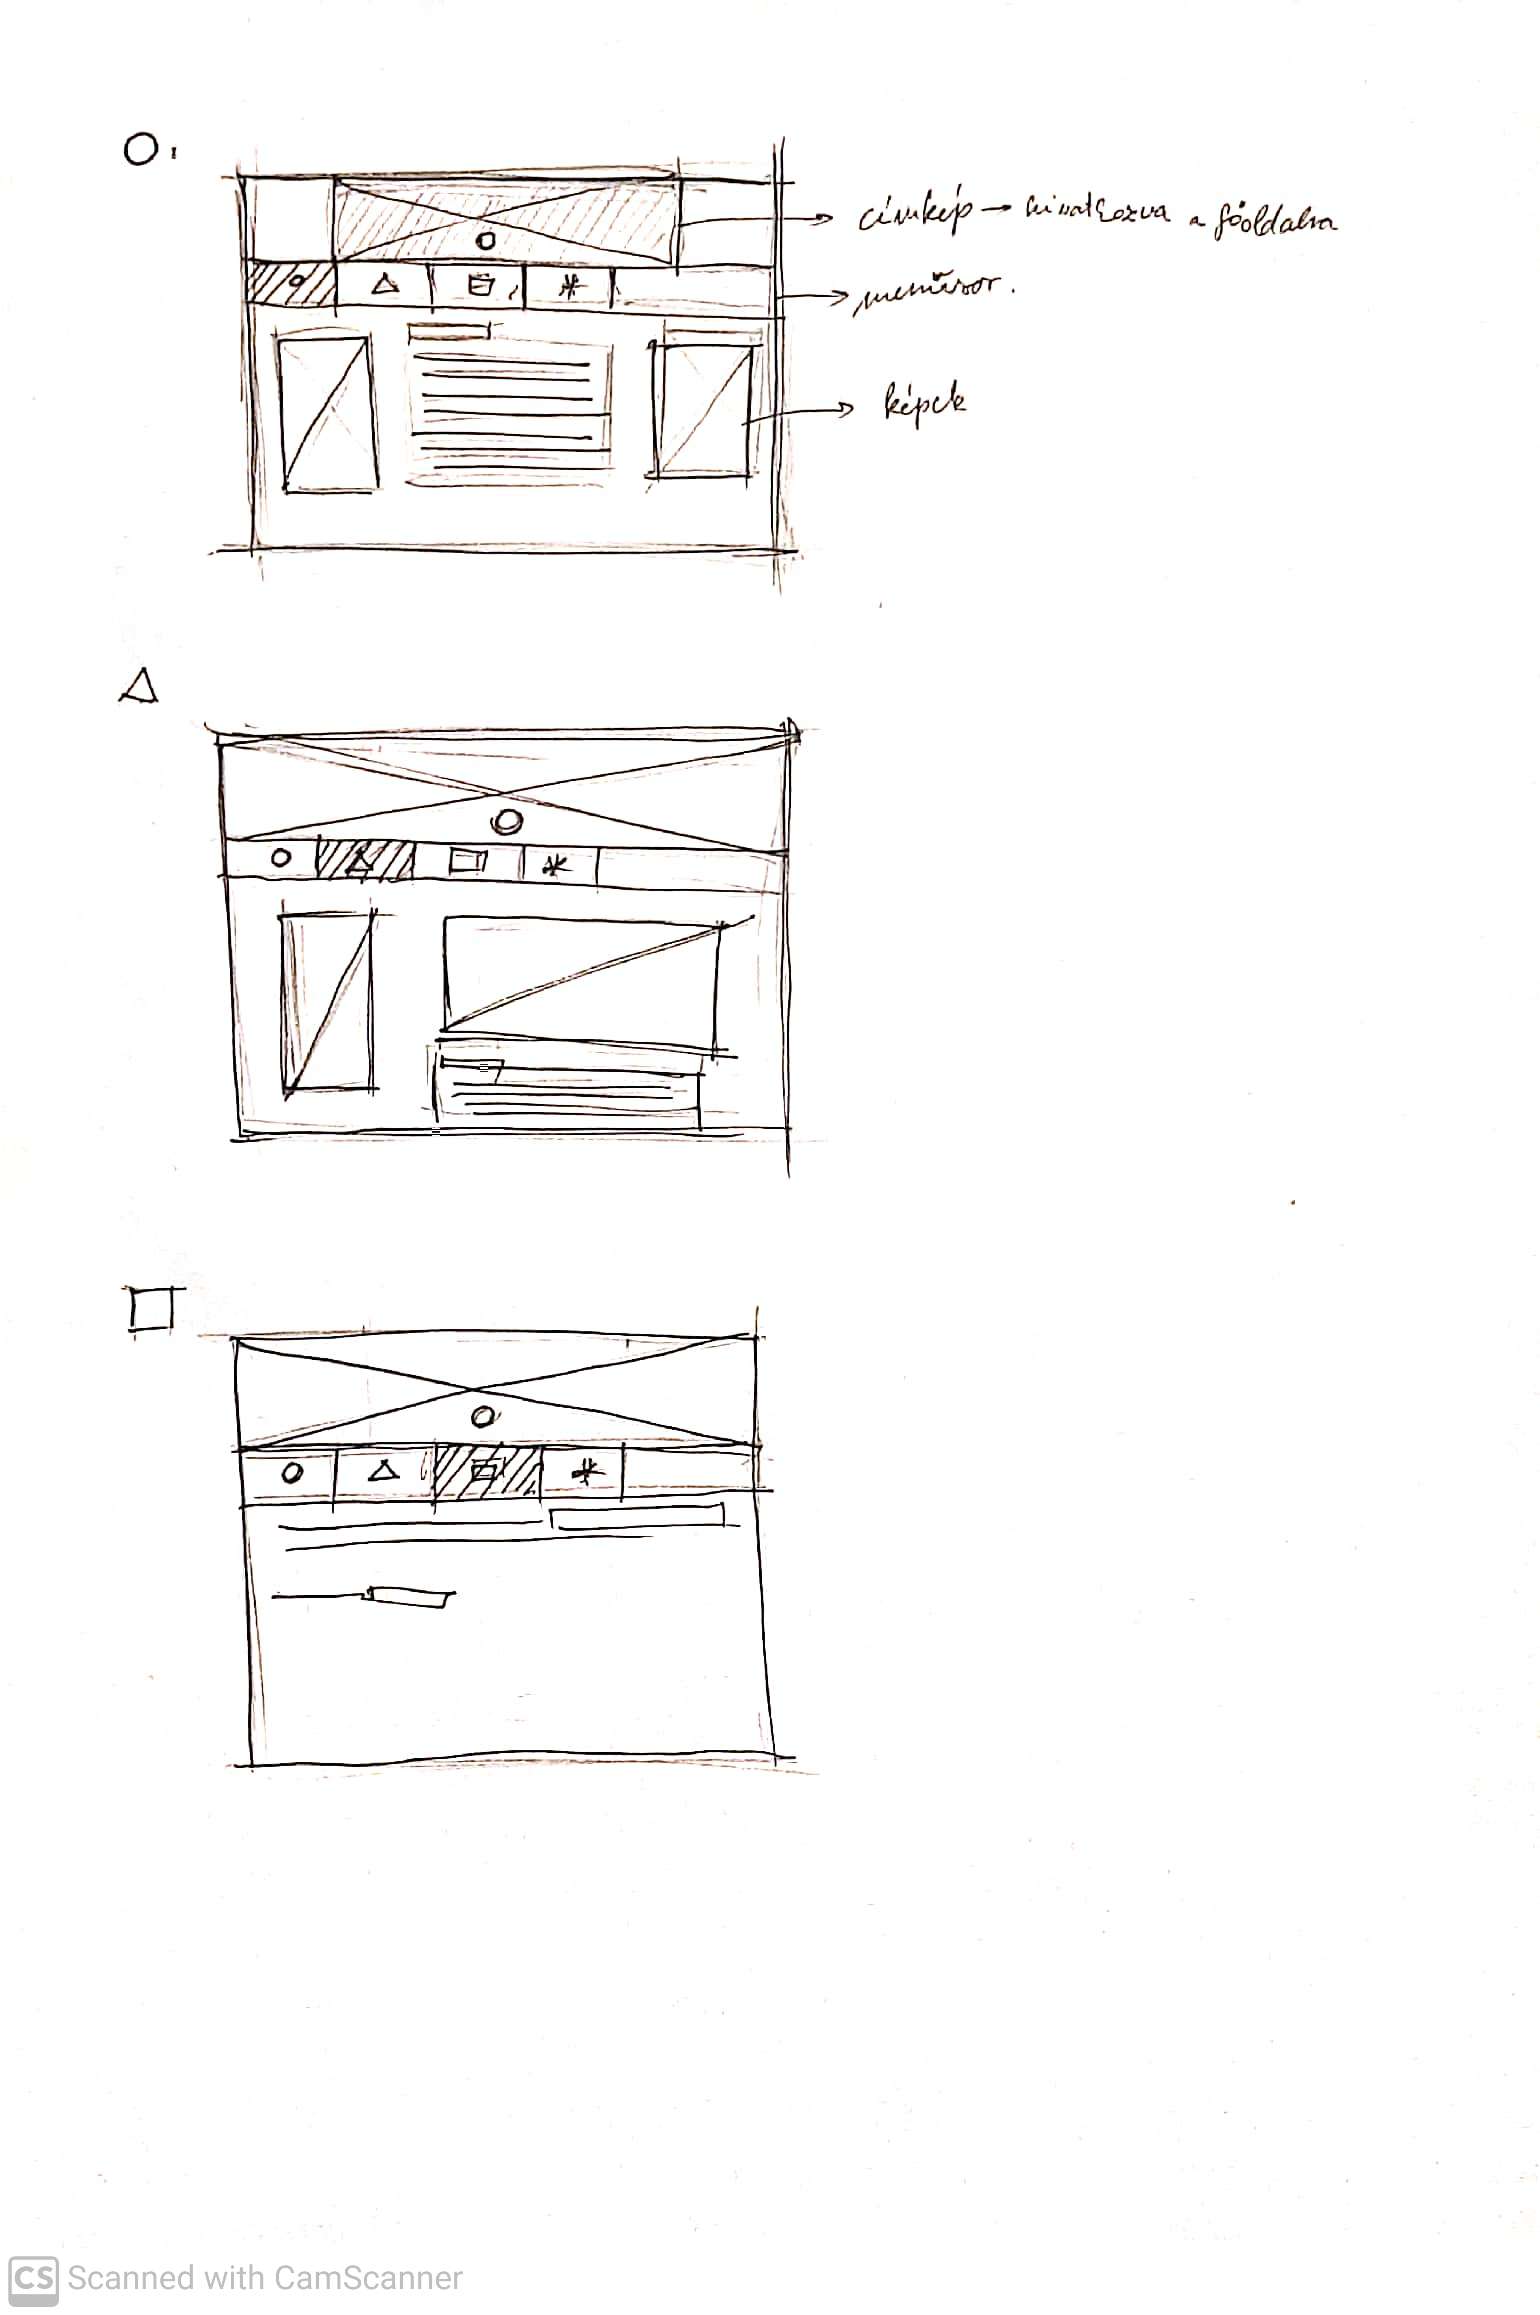 címkép → hivatkozva a főoldalra
menüsor.
képek
CS Scanned with CamScanner